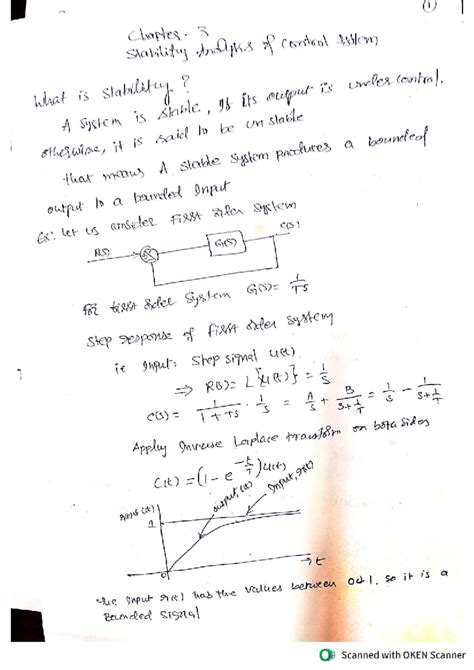 ①
Chapter - 3
Stability Analysis of Control System
What is Stability?
A System is stable, If its output is under control.
otherwise, it is said to be unstable
that means A stable system produces a bounded
output to a bounded Input
Ex: let us consider First order system
R(s) G(s) C(s)
For first order System G(s) = 1/Ts
Step response of First order system
ie Input: Step signal u(t)
⇒ R(s) = L{u(t)} = 1/s
C(s) = 1/(1+Ts) · 1/s = A/s + B/(s+1/T) = 1/s - 1/(s+1/T)
Apply Inverse Laplace transform on both sides
C(t) = (1 - e^(-t/T)) u(t)
r(t), c(t)
output, c(t) Input, r(t)
1
0 → t
The Input r(t) had the values between 0 & 1. So it is a
Bounded Signal
Scanned with OKEN Scanner